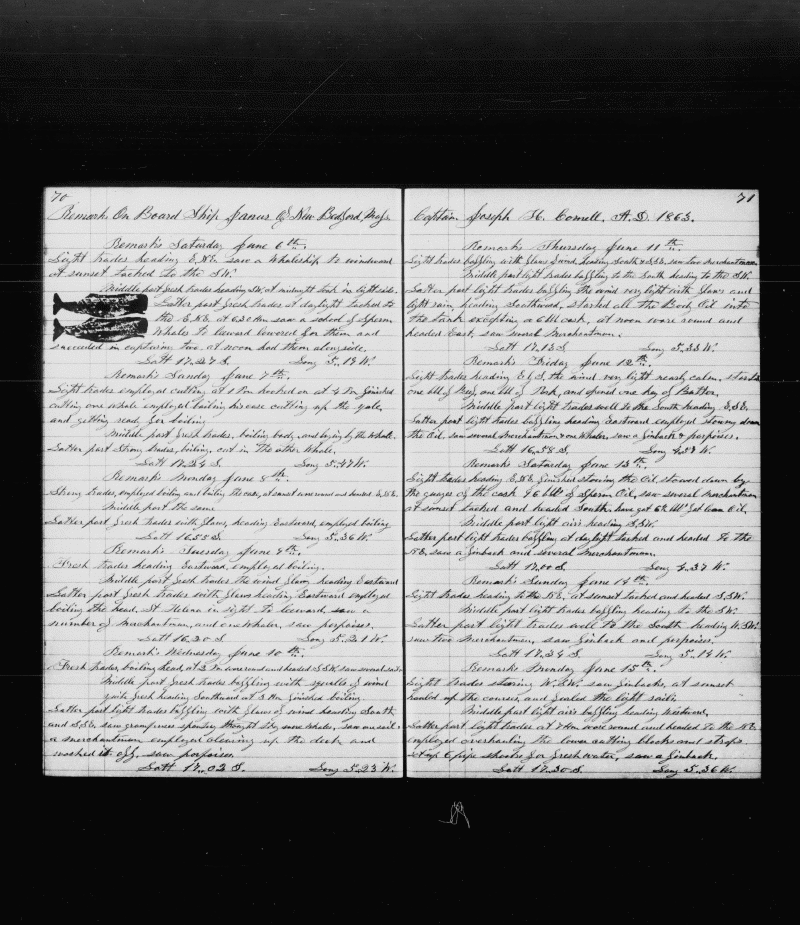 70
Remarks On Board Ship Janus Of New Bedford, Mass
Remarks Saturday June 6th.
Light trades heading E.N.E. saw a Whaleship to windward
at sunset tacked to the S.W.
Middle part fresh trades heading S.W. at midnight took in light sails.
Latter part fresh trades at daylight tacked to
the E.N.E. at 6.30 Am saw a school of Sperm
Whales to leward lowered for them and
succeeded in capturing two, at noon had them alongside.
Latt 17..27 S. Long 5..19 W.
Remarks Sunday June 7th.
Light trades employed cutting at 1 Pm hooked on at 4 Pm finished
cutting one whale employed boiling his case cutting up the
and getting ready for boiling
Middle part fresh trades, boiling body, and laying by the Whale.
Latter part Strong trades, boiling, cut in the other Whale.
Latt 17..24 S. Long 5..47 W.
Remarks Monday June 8th.
Strong trades, employed boiling and boiling the case, at sunset wore round and headed E.N.E.
Middle part the same
Latter part fresh trades with flaws, heading Eastward, employed boiling
Latt 16..55 S. Long 5..36 W.
Remarks Tuesday June 9th.
Fresh trades heading Eastward, employed boiling.
Middle part fresh trades the wind flawy heading Eastward
Latter part fresh trades with flaws heading Eastward employed
boiling the head. St Helena in sight to leward, saw a
number of Merchantmen, and one Whaler, saw porpoises.
Latt 16..20 S Long 5..21 W.
Remarks Wednesday June 10th.
Fresh trades, boiling head, at 3 Pm wore round and headed S.S.W. saw several sails
Middle part fresh trades baffling with squalls of wind
quite fresh heading Southward at 3 Am finished boiling
Latter part light trades baffling with flaws of wind heading South
and S.S.E. saw grampuses spouting thought they were Whales, saw one sail
a merchantman employed clearing up the deck and
washed it off. saw porpoises.
Latt 17..02 S. Long 5..23 W.
71
Captain Joseph H. Cornell, A.D. 1863.
Remarks Thursday June 11th.
Light trades baffling with flaws of wind, heading South & S.S.E. saw two merchantmen.
Middle part light trades baffling to the South heading to the S.W.
Latter part light trades baffling the wind very light with flaws and
light rain, heading Southward, started all the Body Oil into
the tank excepting a 6 bbl cask, at noon wore round and
headed East, saw several Merchantmen.
Latt 17..13 S Long 5..33 W.
Remarks Friday June 12th.
Light trades heading E by S. the wind very light nearly calm,
one bbl of Beef, one bbl of Pork, and opened one keg of Butter.
Middle part light trades well to the South heading E.S.E.
Latter part light trades baffling heading Eastward employed stowing down
the Oil, saw several Merchantmen & one Whaler, saw a finback & porpoises.
Latt 16..58 S. Long 4..57 W.
Remarks Saturday June 13th.
Light trades heading E.N.E. finished stowing the Oil, stowed down by
the gauges of the cask 96 bbls of Sperm Oil, saw several Merchantmen
at sunset tacked and headed South. Oil.
Middle part light airs heading S.S.W.
Latter part light trades baffling at daylight tacked and headed to the
N.E. saw a finback and several Merchantmen.
Latt 17..00 S Long 4..37 W.
Remarks Sunday June 14th.
Light trades heading to the N.E. at sunset tacked and headed S.S.W.
Middle part light trades baffling heading to the S.W.
Latter part light trades well to the South heading W.S.W.
saw two Merchantmen, saw finback and porpoises.
Latt 17..24 S Long 5..19 W.
Remarks Monday June 15th.
Light trades steering W.S.W. saw finbacks, at sunset
hauled up the courses, and furled the light sails.
Middle part light airs baffling heading Westward.
Latter part light trades at 7 Am wore round and headed to the N.E.
employed overhauling the lower cutting blocks and straps.
set up 6 pipe shooks for fresh water, saw a finback.
Latt 17..30 S. Long 5..36 W.